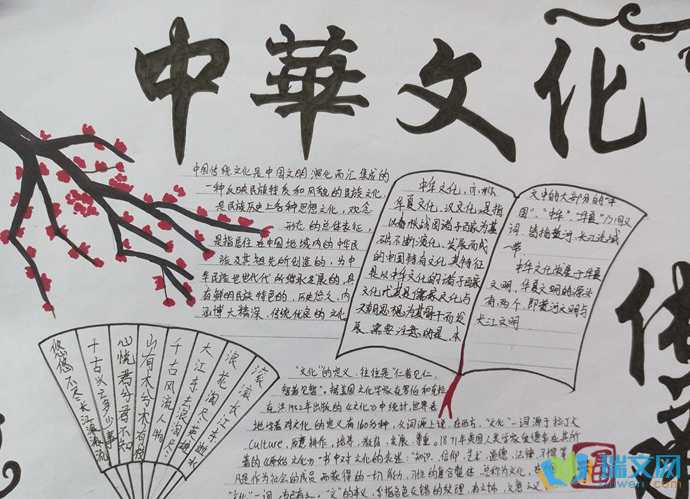 中華文化
中国传统文化是中国文明演化而汇集成的
一种反映民族特质和风貌的民族文化
是民族历史上各种思想文化，观念
形态的总体表征，
是指居住在中国地域内的中华民
族及其祖先所创造的，为中
华民族世世代代所继承发展的，具
有鲜明民族特色的，历史悠久，内
涵博大精深，传统优良的文化
中华文化，亦称
华夏文化，汉文化，是指
以春秋战国诸子百家为基
础不断演化，发展而成
的中国特有文化，其特征
是以中华文化的诸子百家
文化尤其是儒家文化与
天朝思想为其骨干而发
展，需要注意的是，本
文中的大部分的“中
国”、“中华”、“华夏”乃同义
词，皆指黄河，长江流域
一带
中华文化发展于华夏
文明，华夏文明的源头
有两个，即黄河文明与
长江文明
滚滚长江东逝水
浪花淘尽英雄
大江东去浪淘尽
千古风流人物
山有木兮木有枝
心悦君兮君不知
千古兴亡多少事
悠悠不尽长江滚滚流
“文化”的定义，往往是“仁者见仁
智者见智”，据美国文化学家克罗伯和
在1952年出版的《文化》中统计，世界各
地学者对文化的定义有160分种，从词源上说，在西方，“文化”一词源于拉丁文
Culture，原意耕作，培养，教育，发展，尊重，1871年英国人类学家爱德华
著的《原始文化》一书中对文化的表述：“知识，信仰，艺术，道德，法律，习惯等
凡是作为社会的成员而获得的一切能力，习性的复合整体，总称为文化，
“文化”一词，
瑞文网